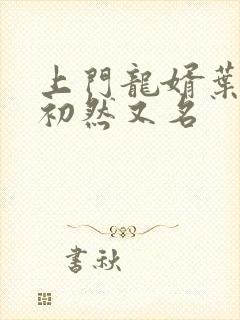 上門龍婿葉
初然又名
書秋